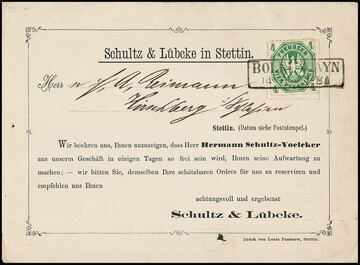 Schultz & Lübcke in Stettin.
4 PREUSSEN 4
BOL
YN
Herrn
Hirschberg
Stettin. (Datum siehe Poststempel.)
Wir beehren uns, Ihnen anzuzeigen, dass Herr Hermann Schultz-Voelcker
aus unserm Geschäft in einigen Tagen so frei sein wird, Ihnen seine Aufwartung zu
machen; — wir bitten Sie, demselben Ihre schätzbaren Ordres für uns zu reserviren und
empfehlen uns Ihnen
achtungsvoll und ergebenst
Schultz & Lübcke.
Druck von Louis Passenow, Stettin.